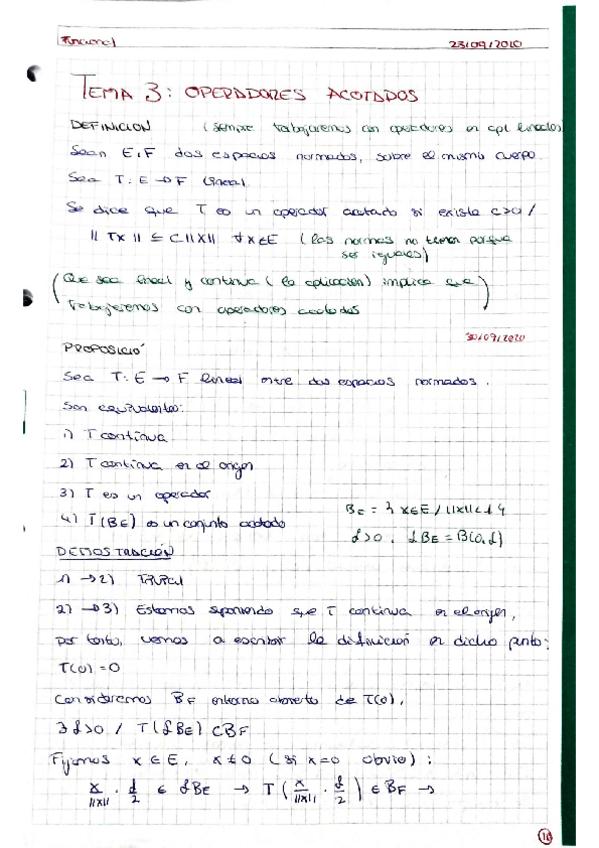 Funcional 23/09/2020
TEMA 3: OPERADORES ACOTADOS
DEFINICION (siempre trabajaremos con operadores en apl lineales)
Sean E, F dos espacios normados, sobre el mismo cuerpo.
Sea T: E → F lineal.
Se dice que T es un operador acotado si existe c>0 /
||Tx|| ≤ C||x|| ∀x∈E (las normas no tienen porque
ser iguales)
(Que sea lineal y continua (la aplicación) implica que
trabajaremos con operadores acotados)
30/09/2020
PROPOSICIÓ
Sea T: E → F lineal entre dos espacios normados.
Son equivalentes:
1) T continua
2) T continua en el origen
3) T es un operador
4) T(BE) es un conjunto acotado
BE = {x∈E / ||x||<1}
δ>0, δBE = B(0,δ)
DEMOSTRACIÓN
1) → 2) TRIVIAL
2) → 3) Estamos suponiendo que T continua en el origen,
por tanto, vamos a escribir la definición en dicho punto:
T(0) = 0
Consideremos BF entorno abierto de T(0),
∃ δ>0 / T(δBE) ⊂ BF
Fijamos x ∈ E, x ≠ 0 (si x=0 obvio):
x/||x|| · δ/2 ∈ δBE → T(x/||x|| · δ/2) ∈ BF →